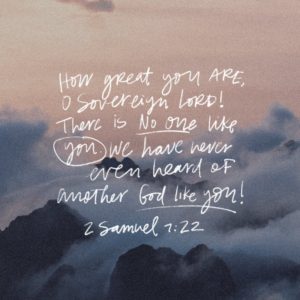 How great you ARE,
O Sovereign LORD!
There is No one like
you. We have never
even heard of
another God like you!
2 Samuel 7:22